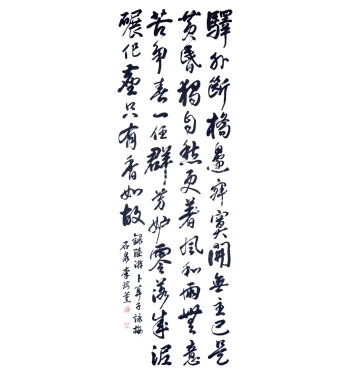 驛外斷橋邊寂寞開無主已是
黃昏獨自愁更著風和雨無意
苦爭春一任群芳妒零落成泥
碾作塵只有香如故
錄陸游卜算子詠梅
石泉李